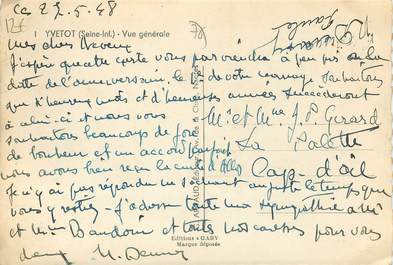 ce 27.5.48
1 YVETOT (Seine-Inf.) - Vue générale
Mes chers Neveux
J'espère que cette carte vous parviendra à peu près pour la
date de l'anniversaire, le 1er de votre mariage souhaitons
que d'heureux mois et d'heureuses années succéderont
à celui-ci et nous vous
souhaitons beaucoup de joie
de bonheur et un accord parfait
nous avons bien reçu la carte d'
Je n'y ai pas répondu ne sachant au juste le temps que
vous y restiez - J'adresse toute ma sympathie à Mr
et Mme Baudoin et toutes nos caresses pour vous
deux
Mr et Mme J.P. Gerard
La
Cap-d'Ail
Editions "GABY"
Marque déposée